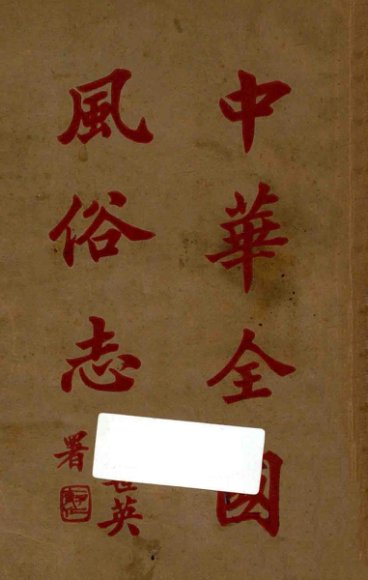 中華全國
風俗志
英
署